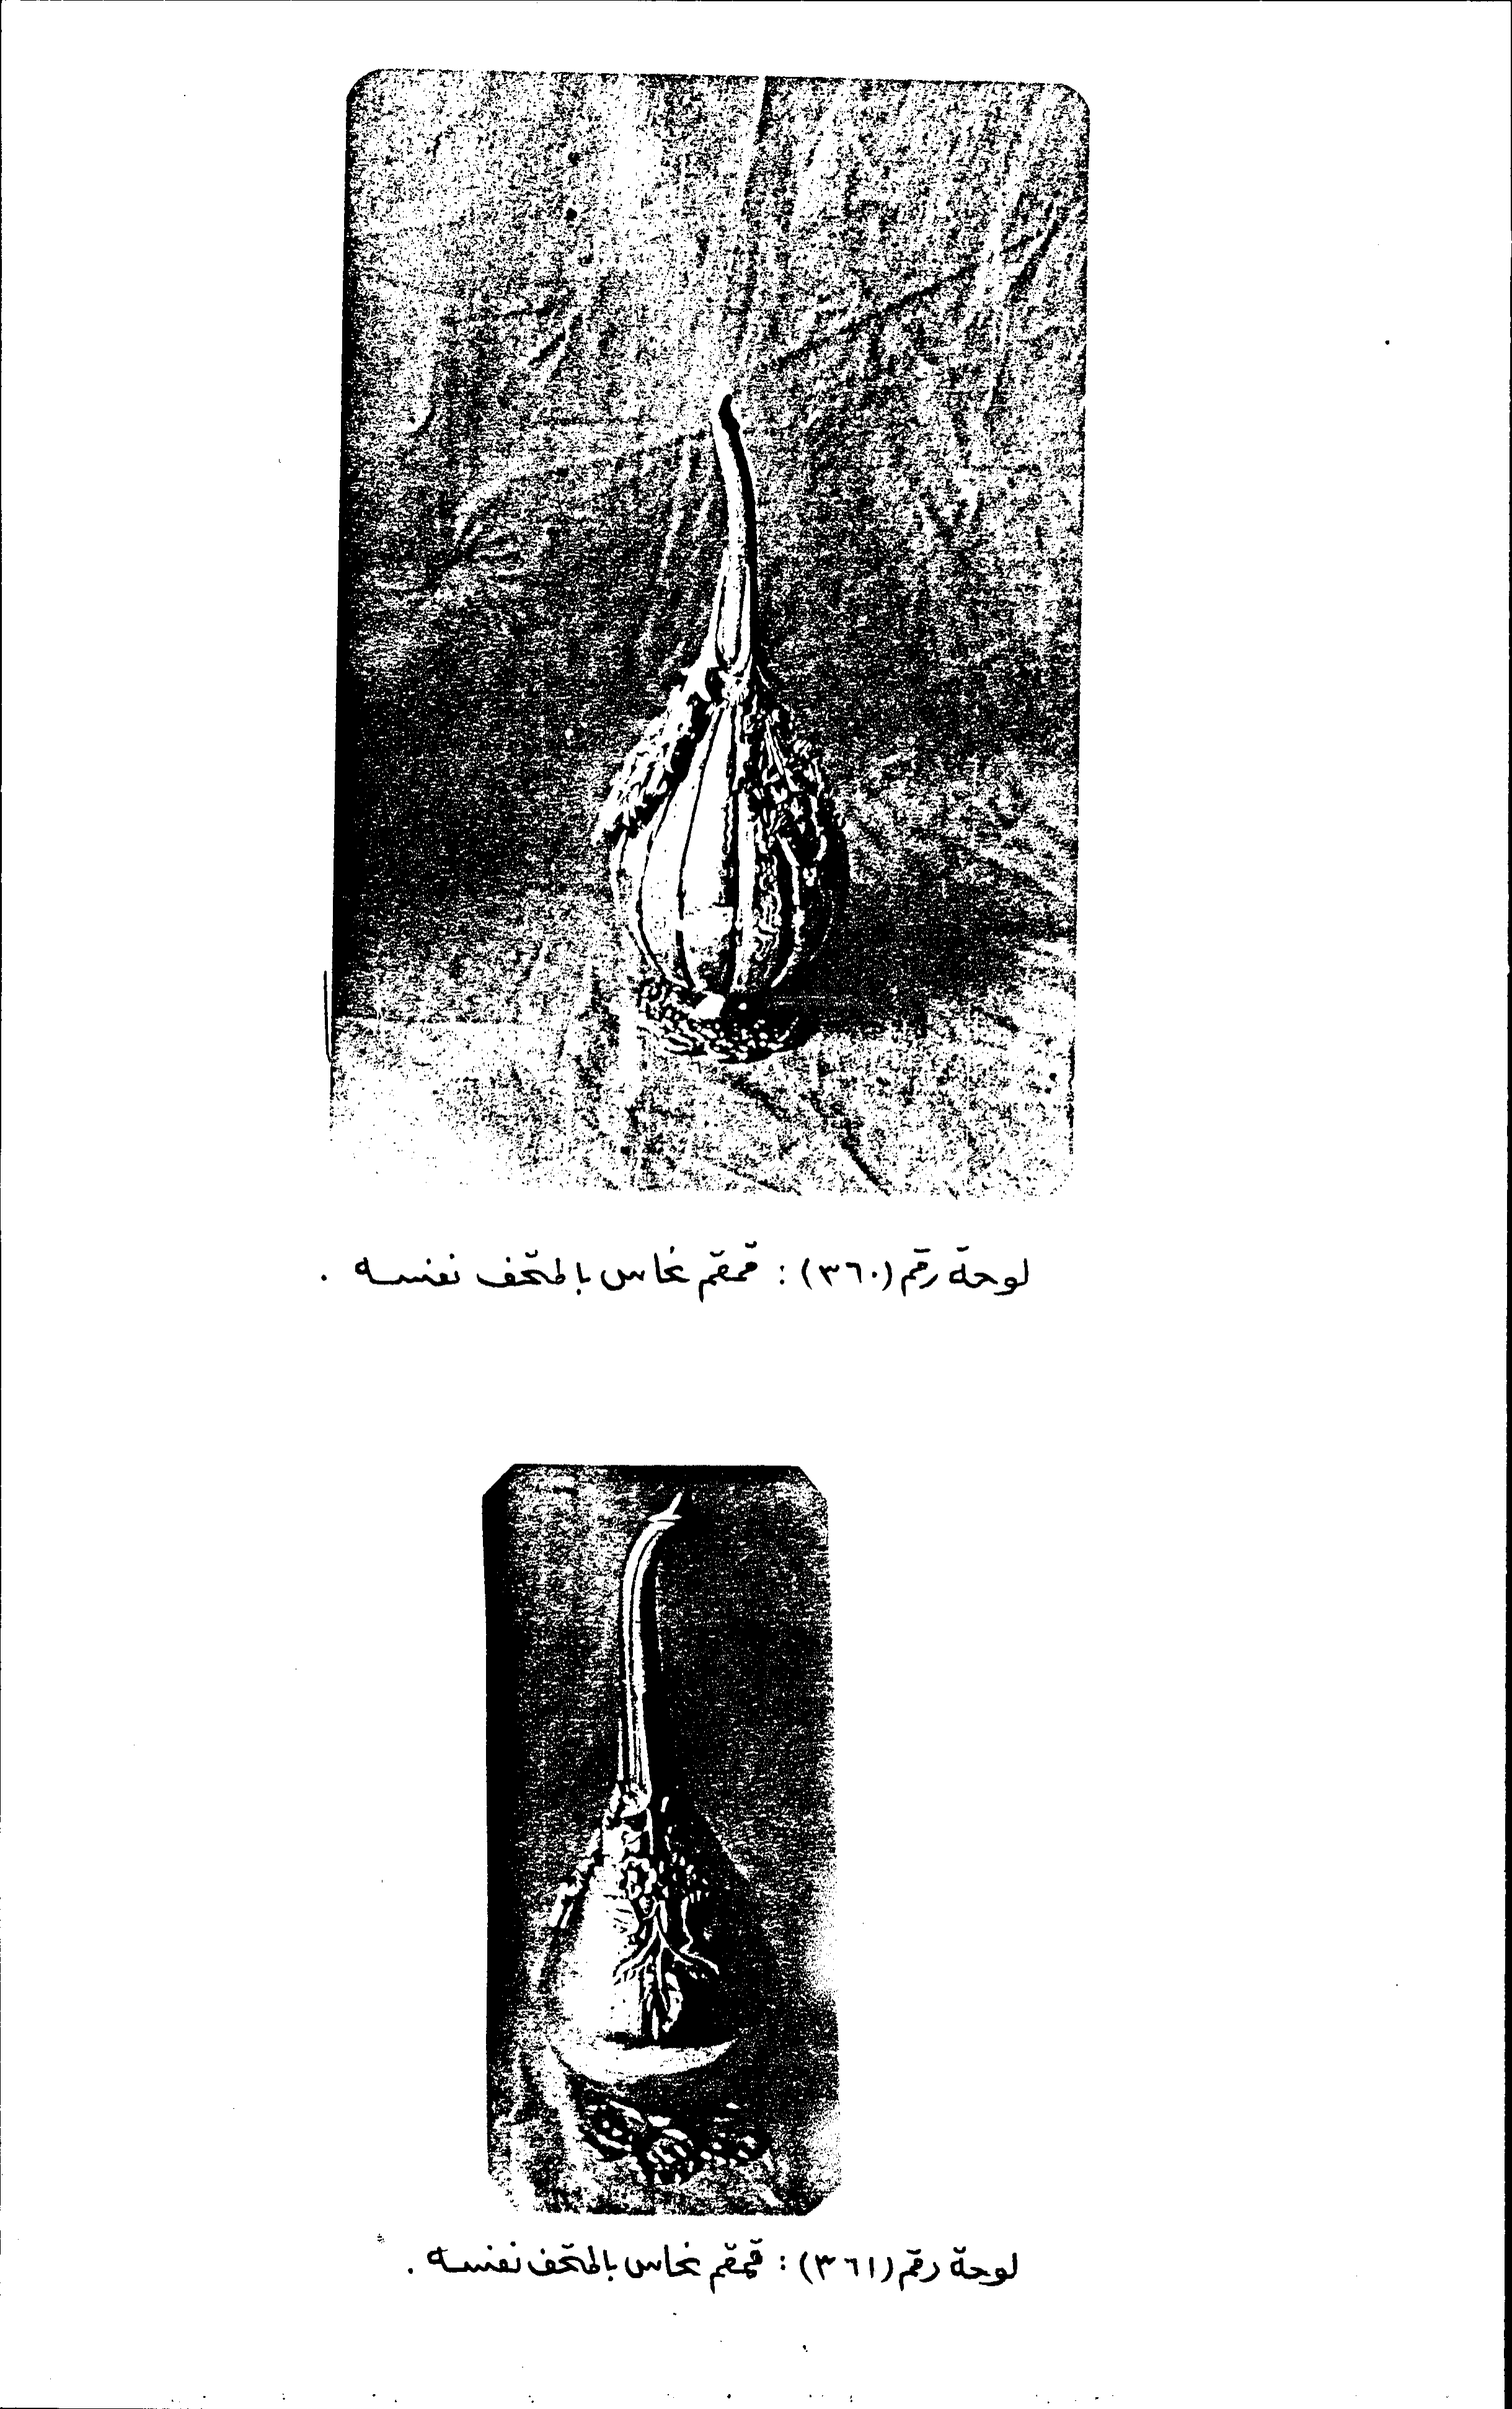 لوحة رقم (٣٦٠) : قمقم نحاس بالمتحف نفسه .
لوحة رقم (٣٦١) : قمقم نحاس بالمتحف نفسه .